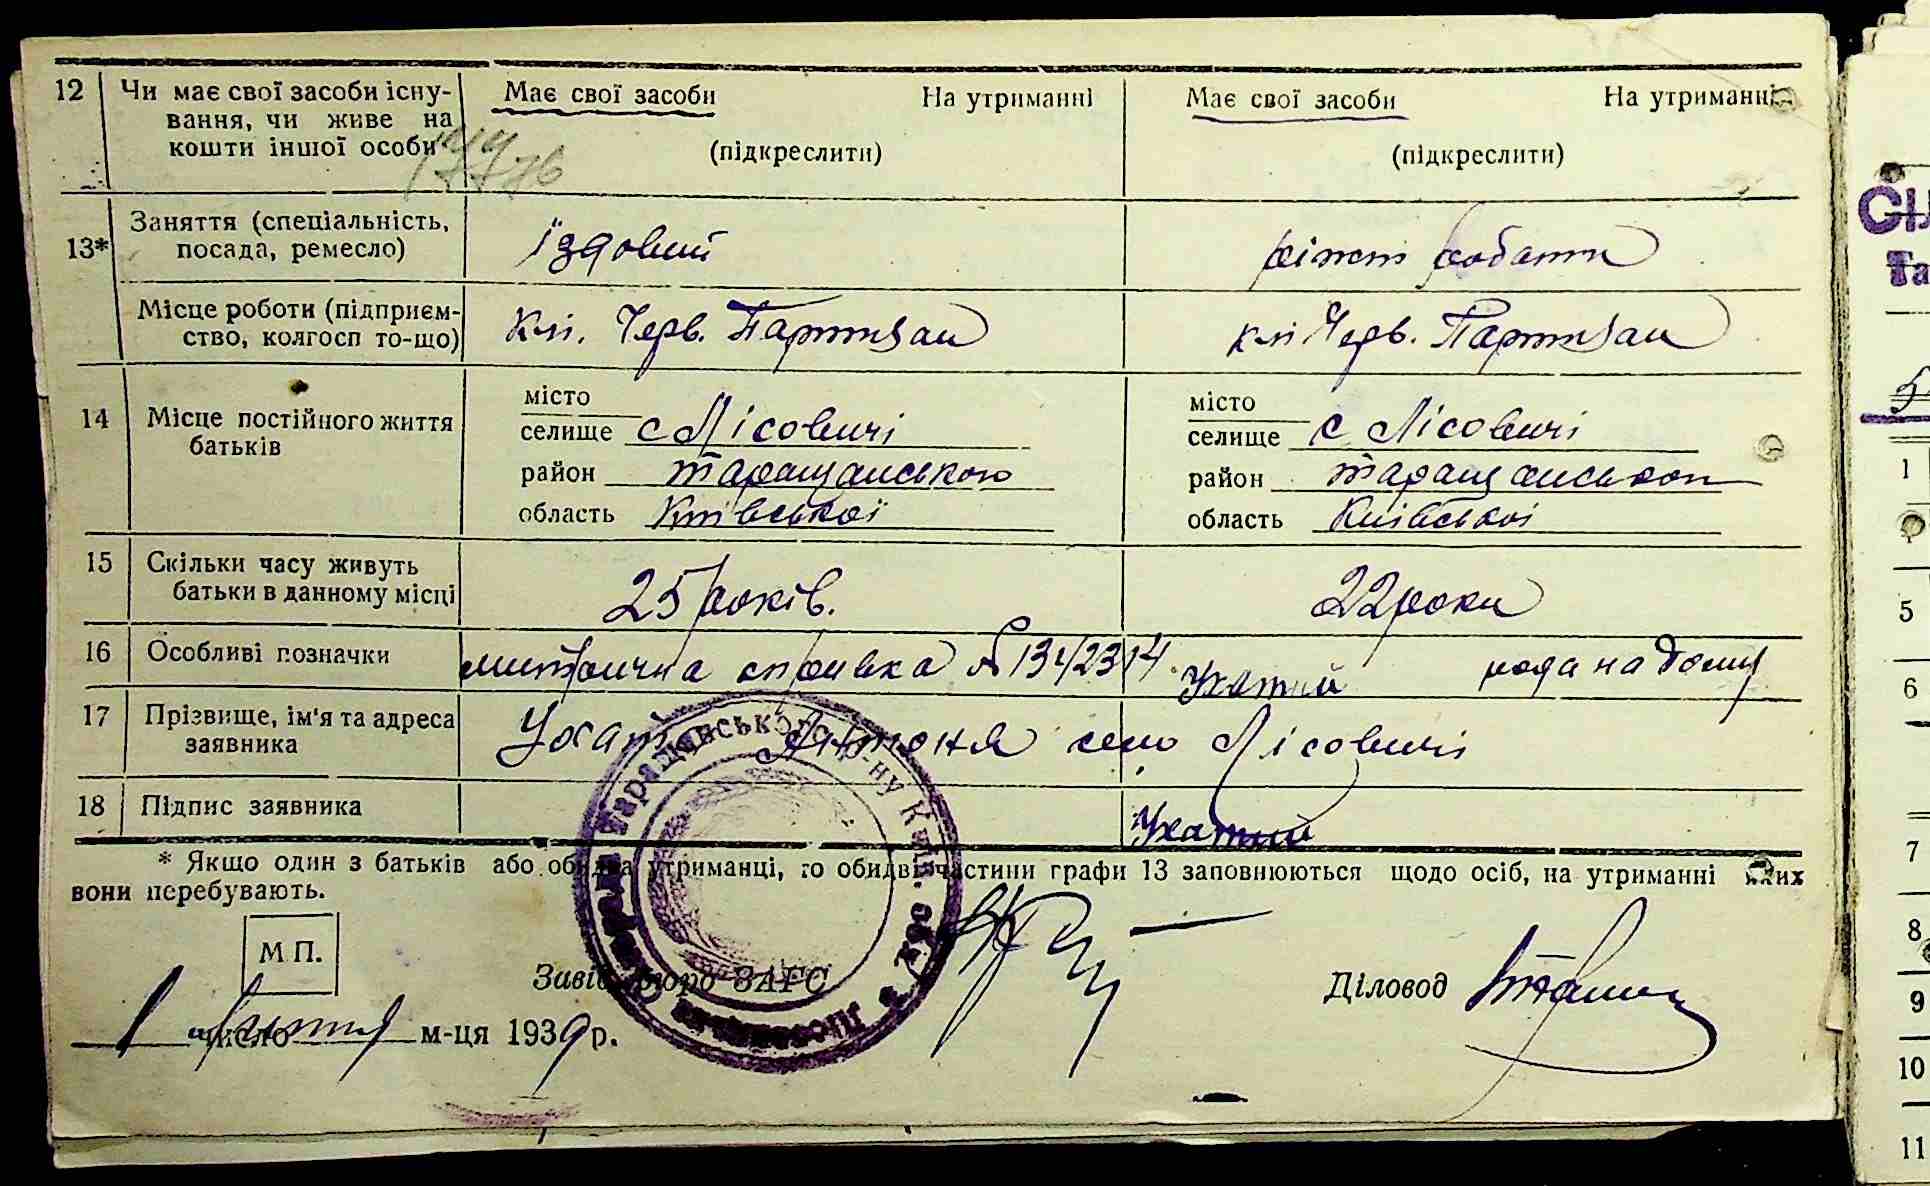 12 Чи має свої засоби існу- Має свої засоби На утриманні Має свої засоби На утриманні
вання, чи живе на
кошти іншої особи (підкреслити) (підкреслити)
13* Заняття (спеціальність,
посада, ремесло) їздовий різні работи
Місце роботи (підприєм-
ство, колгосп то-що) Черв. Партизан Черв. Партизан
14 Місце постійного життя
батьків
місто місто
селище с Лісовичі селище с Лісовичі
район таращанського район
область Київської область Київської
15 Скільки часу живуть
батьки в данному місці 25 років. 22 роки
16 Особливі позначки справка Ухатий
17 Прізвище, ім'я та адреса
заявника село Лісовичі
18 Підпис заявника Ухатий
* Якщо один з батьків або на утриманці, то обидві частини графи 13 заповнюються щодо осіб, на утриманні яких
вони перебувають.
М П.
Завід. бюро ЗАГС Діловод
1 число м-ця 1939 р.
Таращанського р-ну Київ. обл.
Сі
Та
1
5
6
7
8
9
10
11